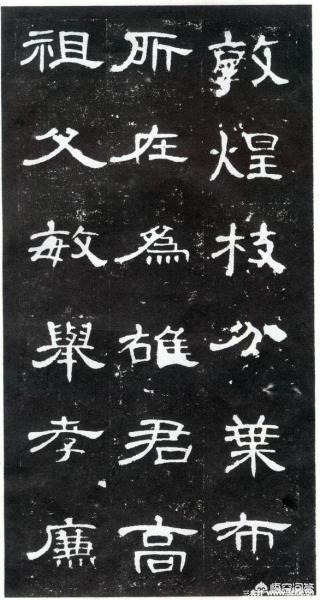 敦煌枝分葉布
所在為雄君高
祖父敏舉孝廉
悟空问答